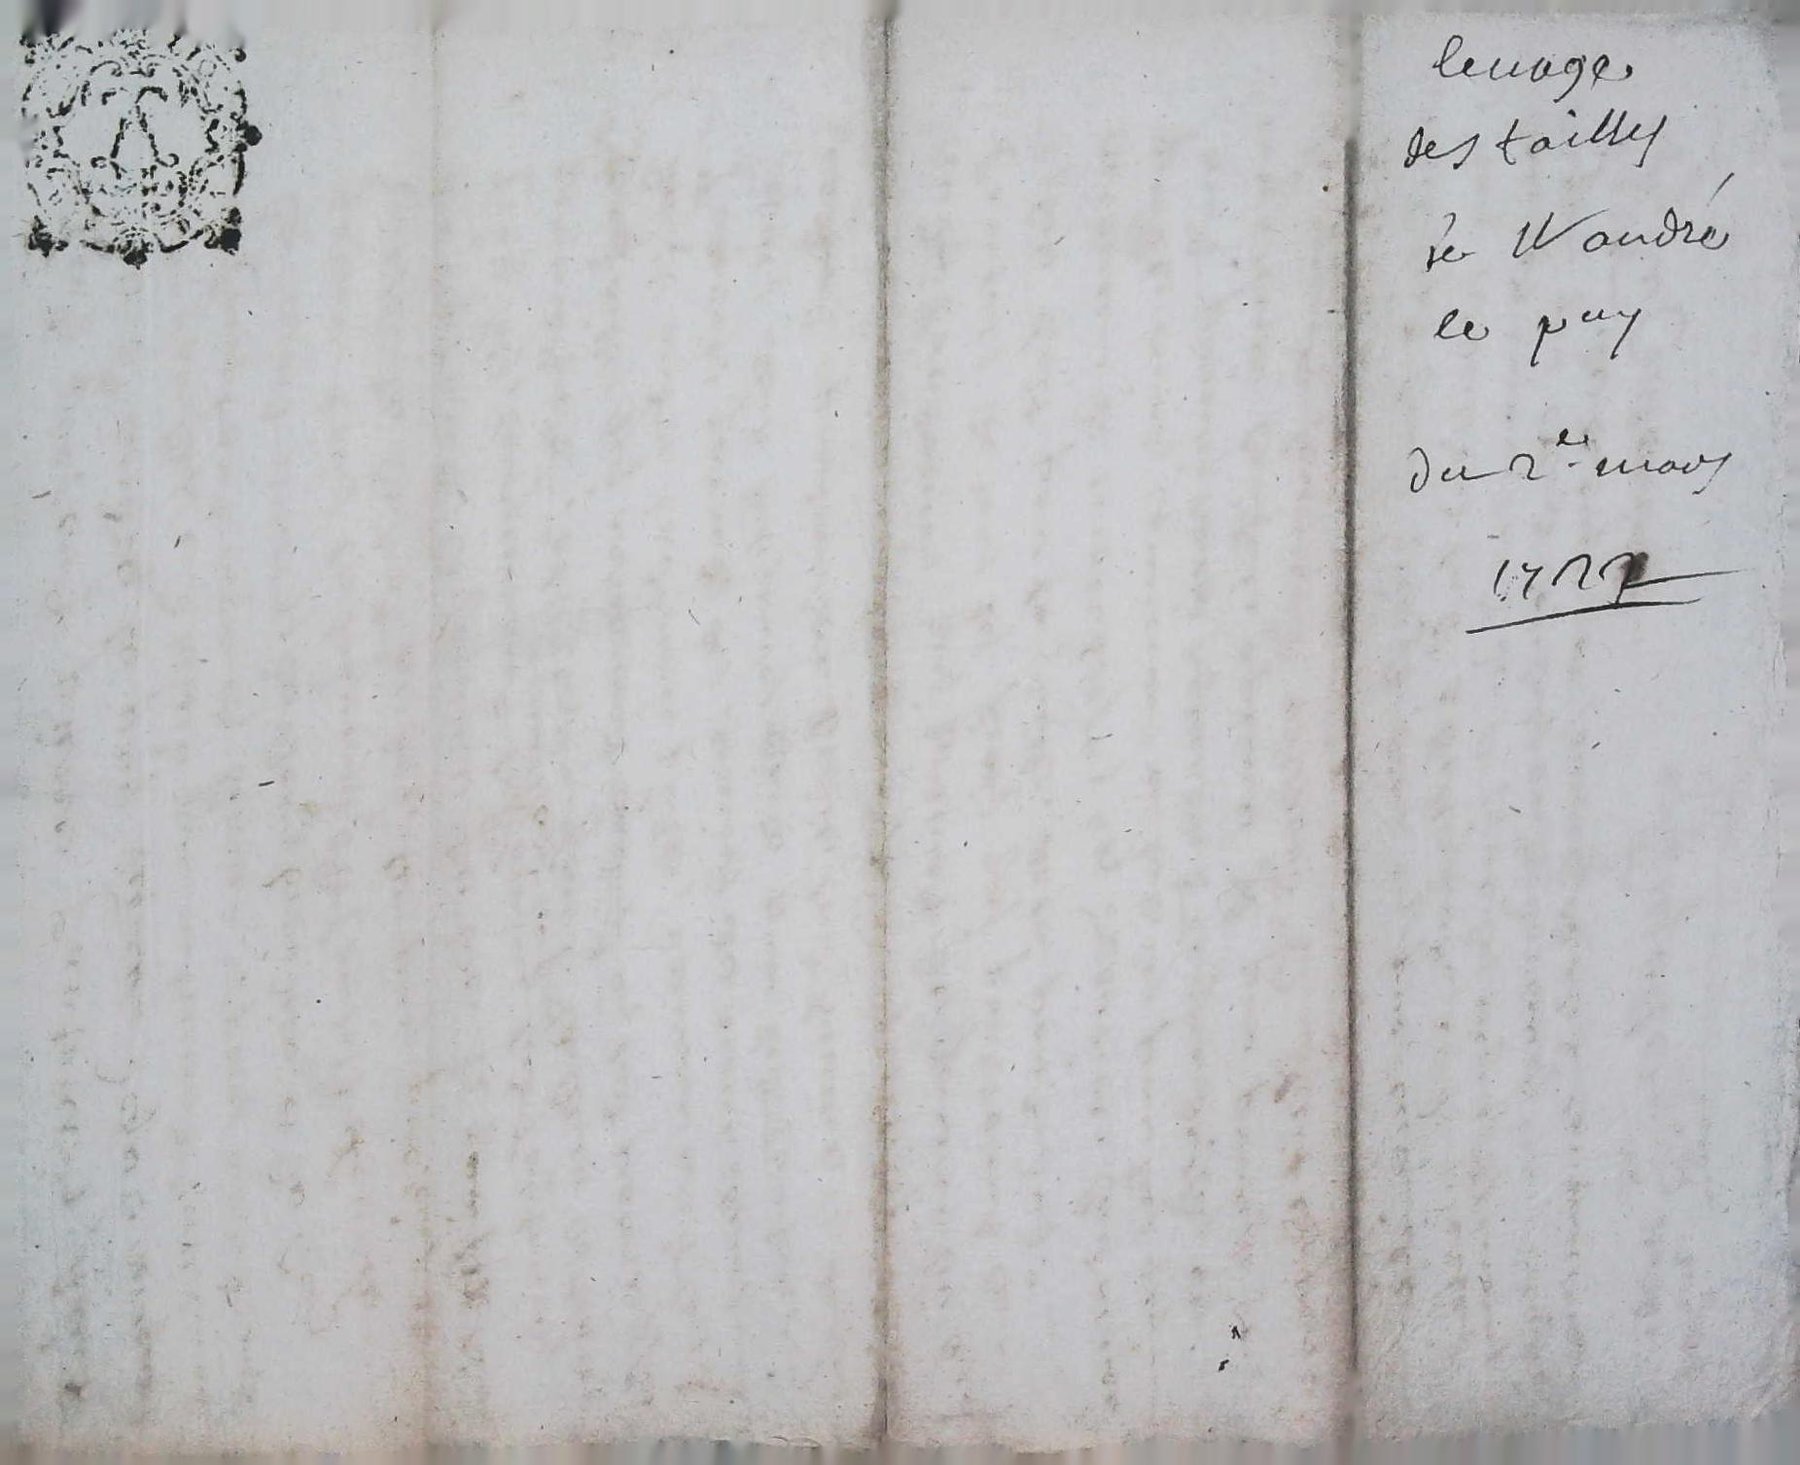 leuage
des tailles
de Vandré
le puy
du 2e mars
1722